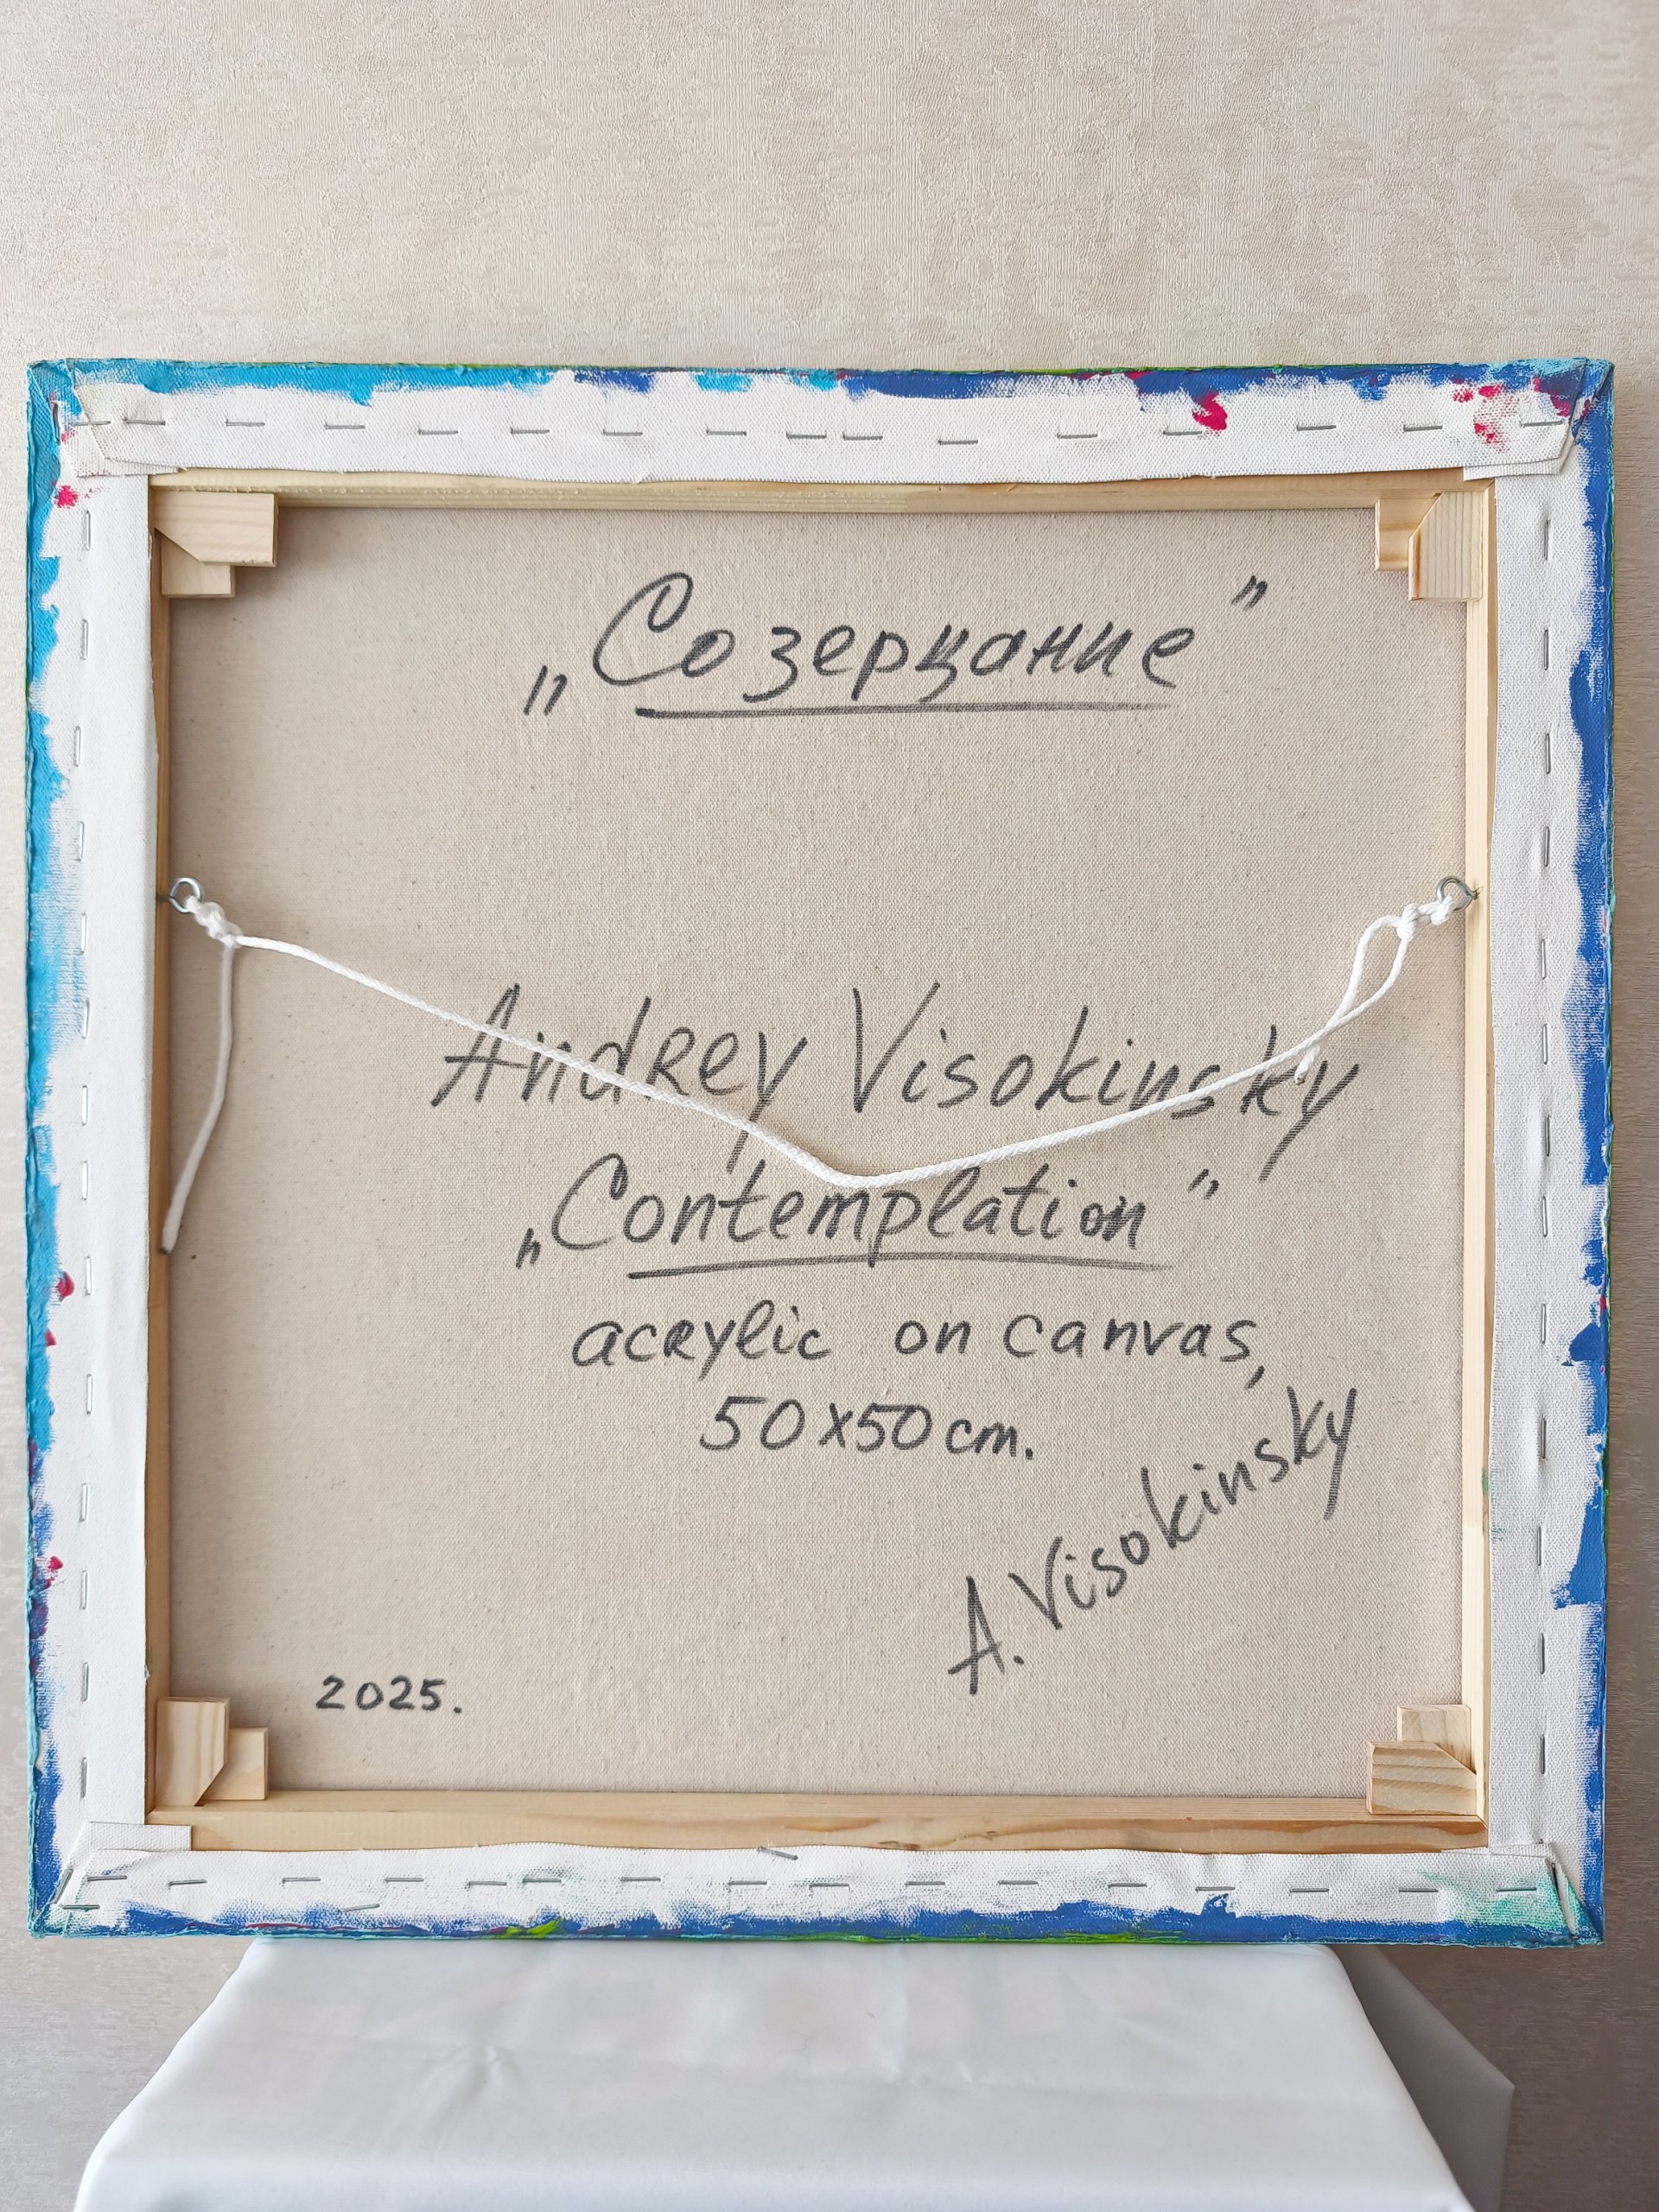 „Созерцание”
Andrey Visokinsky
„Contemplation”
acrylic on canvas,
50x50 cm.
A. Visokinsky
2025.